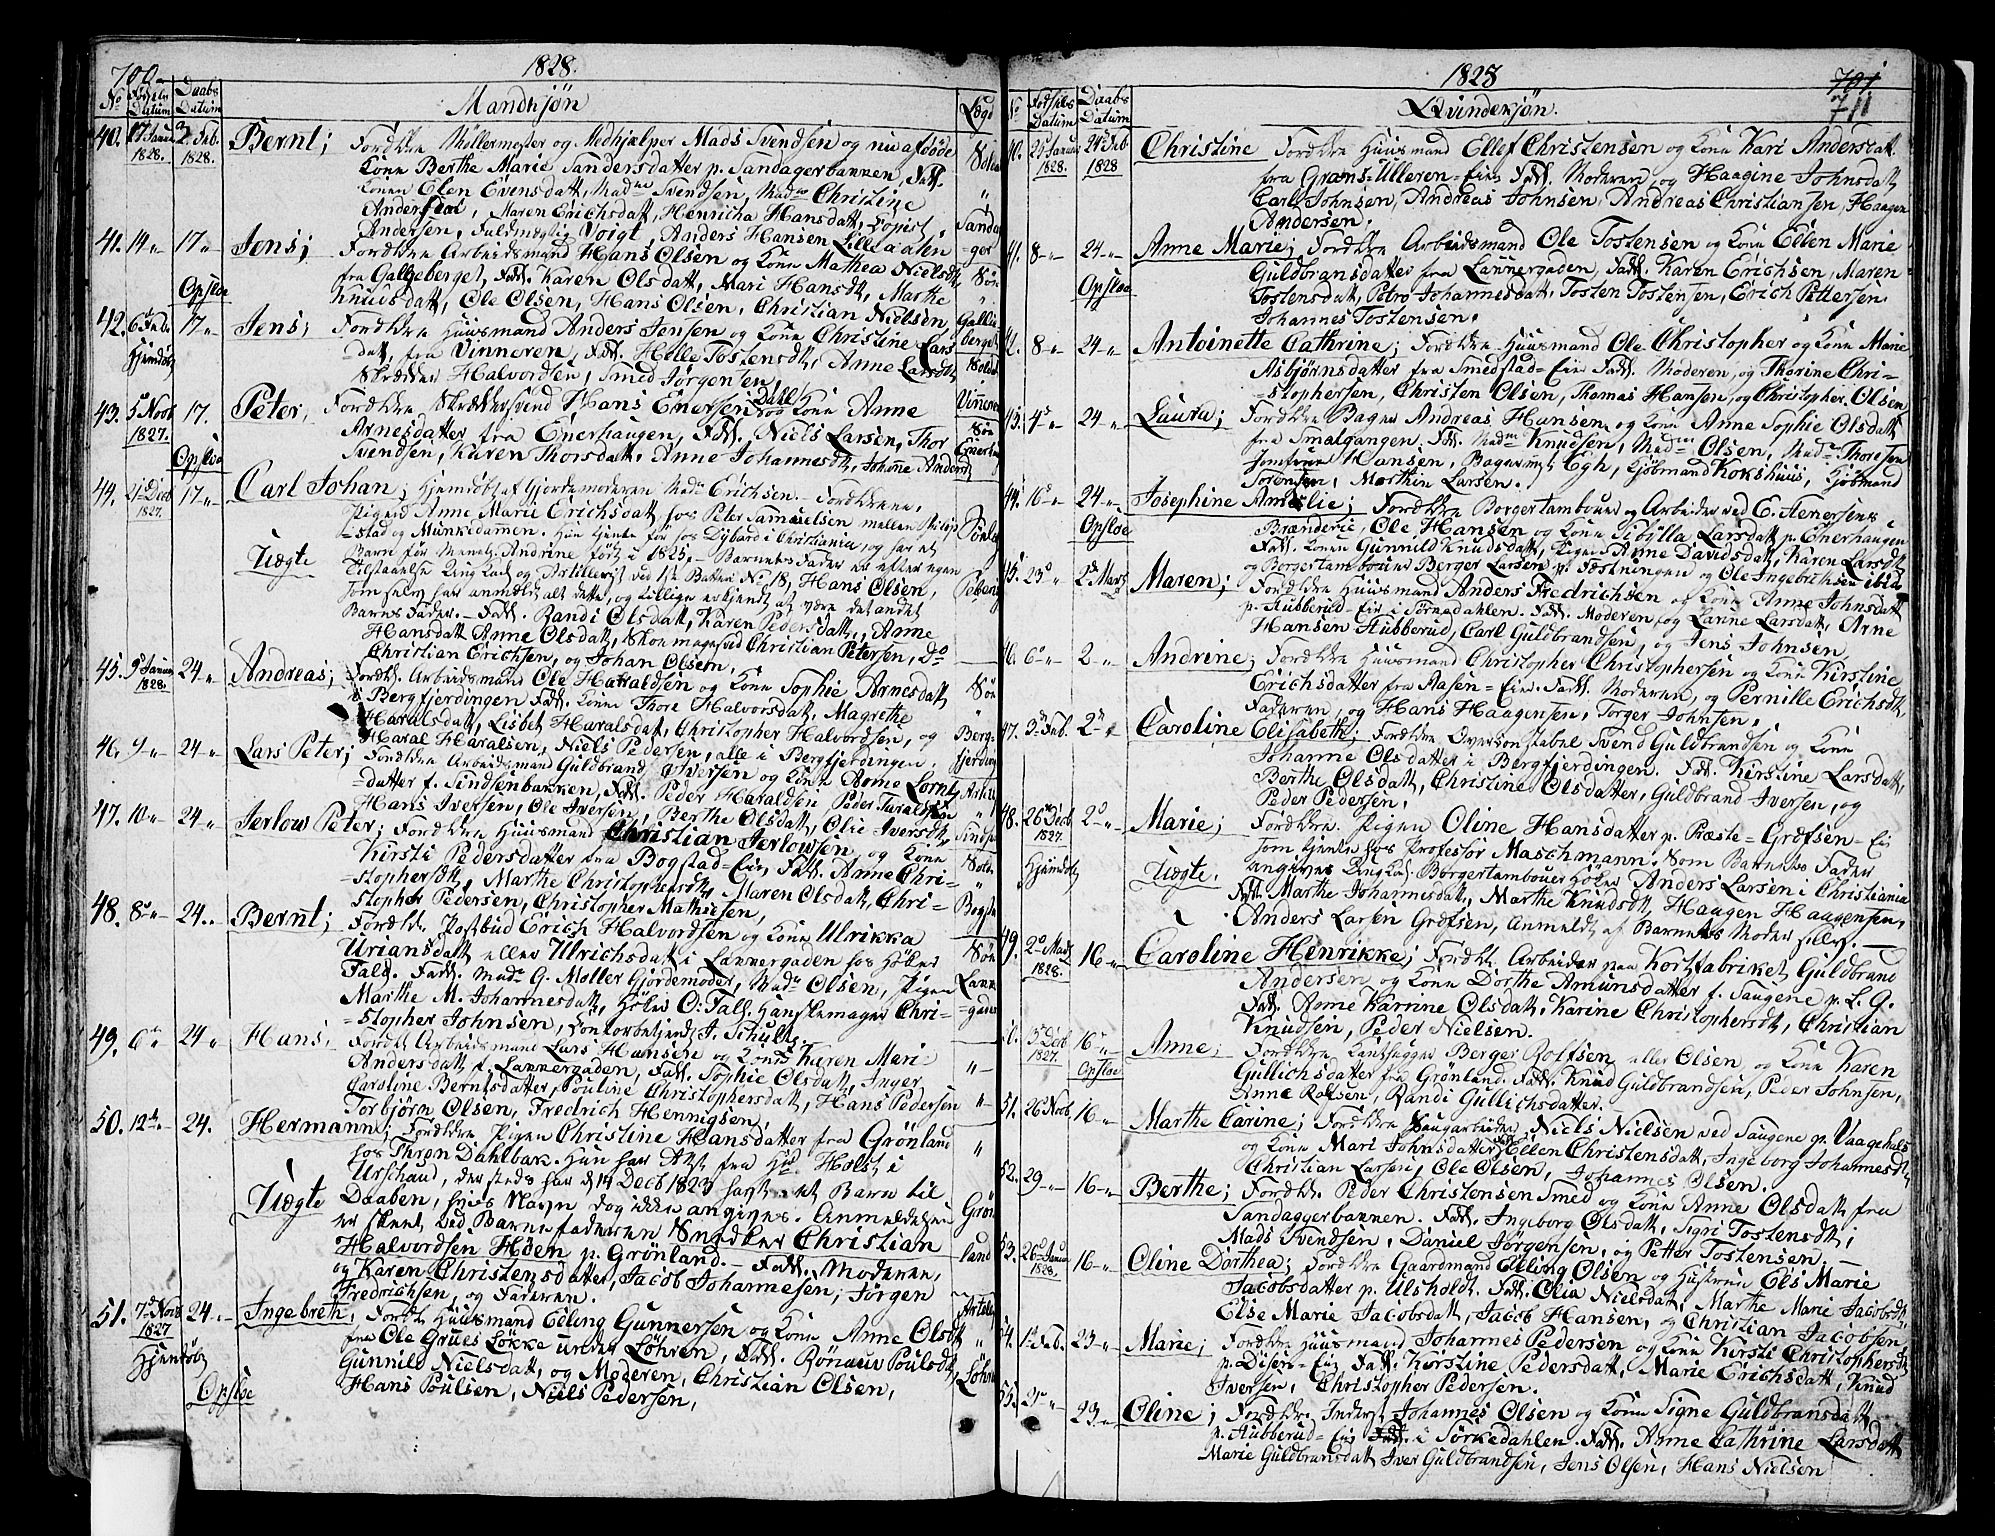 700.
1828.
No Fødsels Datum Daabs Datum
Mandkjøn
Lægd
40. 17 Janu 1828. 2 Feb. 1828. Bernt; Forældre Møllermester og Medhjelper Mads Svendsen og nu afdøde
Kone Berthe Marie Sandersdatter p. Sandagerbakken, Fadd.
Konen Elen Evensdatt, Madme Svendsen, Madme Christine
Andersen, Maren Erichsdatt, Henricha Hansdatt,
Andersen, Fuldmægtig Voigt, Anders Hansen Lilloaalen
41. 14 " 17 " Jens; Forældre Arbeidsmand Hans Olsen og Kone Mathea Nielsdt
Opsloe
fra Galgeberget, Fadd. Karen Olsdatt, Mari Hansdt, Marthe
Knudsdatt, Ole Olsen, Hans Olsen, Christian Nielsen,
42. 6 Feb. 17 " Jens; Forældre Huusmand Anders Jensen og Kone Christine Lars-
Hjemdøbt
datt, fra Vinneren, Fadd. Helle Tostensdt, Anne Larsdt
Skrædder Halvordsen, Smed Jørgensen,
43. 5 Novb 1827. 17. Peter, Forældre Skræddersvend Hans Enersen Dahl og Kone Anne
Opsloe
Arnesdatter fra Enerhaugen, Fadd. Niels Larsen, Thor
Svendsen, Karen Thorsdatt, Anne Johannesdt, Johane Andersd
44. 21 Decb 1827. 17 " Carl Johan; Hjemdøbt af Gjordemoderen Mad. Erichsen. Forældrene,
Pigen Anne Marie Erichsdatt hos Peter Samuelsen mellem Pilestæd
-stad og Munkedammen. Hun tjente før hos Dybard i Christiania, og har et
Uægte
Barn før ved Navn Andrine født i 1825. Barnets Fader er efter egen
Tilstaaelse Ung Karl og Artillerist ved 1ste Batteri No 18, Hans Olsen,
som selv har anmeldt alt dette, og tillige erkjendt at være det andet
Barns Fader. Fadd. Randi Olsdatt, Karen Pedersdatt, Anne
Hansdatt Anne Olsdatt, Skomagersvd Christian Petersen, do
Christian Erichsen, og Johan Olsen,
45. 9 Janu 1828. 24 " Andreas; Foræld. Arbeidsmand Ole Haraldsen og Kone Sophie Arnesdatt
i Bergfjerdingen Fadd. Konen Thore Halvorsdatt, Magrethe
Haralsdatt, Lisbet Haralsdatt, Christopher Halvordsen, og
Haral Haralsen, Niels Pedersen, alle i Bergfjerdingen.
46. 9 " 24 " Lars Peter; Forældre Arbeidsmand Guldbrand Iversen og Kone Anne Lornts-
datter f. Sindsenbakken, Fadd. Peder Haraldsen Peder
Hans Iversen, Ole Iversen, Berthe Olsdatt, Olie Iversdt,
47. 10 " 24 " Jerlow Peter; Forældre Huusmand Christian Jerlowsen og Kone
Kirsti Pedersdatter fra Bogstad-Eie, Fadd. Anne Chri-
-stophersdt, Marthe Christophersdt, Maren Olsdatt, Chri-
stopher Pedersen, Christopher Mathisen,
48. 8 " 24. Bernt; Forældr. Postbud Erich Halvordsen og Kone Ulrikka
Uriansdatt eller Ulrichsdatt i Lakkergaden hos Høker
Falk. Fadd. Madm. G. Møller Gjordemoder, Madm Olsen, Pigen
Marthe M. Johannesdatt, Høker O. Falk, Hanskemager Chri-
-stopher Johnsen, Kontorbetjent J. Schultz.
49. 6 " 24 " Hans, Forældr. Arbeidsmand Lars Hansen og Kone Karen Mari
Andersdatt f. Lakkergaden, Fadd. Sophie Olsdatt, Inger
Caroline Berntsdatter, Pouline Christophersdatt, Hans Pedersen
Torbjørn Olsen, Fredrich Hennigsen,
50. 12 " 24. Hermann; Forældre Pigen Christine Hansdatter fra Grønland
hos Thron Dahlbak. Hun har Attst fra Hr Holst i
Urschau, der steds har d 14 Decb 1823 havt et Barn til
Uægte
Daaben, hvis Navn dog ikke angives. Anmeldelsen
er skeet ved Barnefaderen Snedker Christian
Halvordsen Høen p. Grønland. Fadd. Moderen,
og Karen Christensdatter, Jacob Johannesen, Jørgen
Fredrichsen, og Faderen.
51. 7 Novb 1827 24 " Ingebreth, Forældr Huusmand Elling Gunnersen og Kone Anne Olsdt
Hjemdøbt
fra Ole Grues Løkke under Løhren, Fadd. Rønnaug Poulsdt,
Opsloe
Gunnild Nielsdatt, og Moderen, Christian Olsen,
Hans Poulsen, Niels Pedersen,
1828
701
711
No Fødsels Datum Daabs Datum
Qvindekjøn.
40. 25 Januar 1828. 24 Feb. 1828 Christine Forældre Huusmand Ellef Christensen og Kone Kari Andersdatt
fra Grøns-Ulleren-Eie Fadd. Moderen, og Haagine Johnsdatt
Carl Johnsen, Andreas Johnsen, Andreas Christiansen, Haagen
Andersen.
41. 8 " 24 " Anne Marie; Forældre Arbeidsmand Ole Tostensen og Kone Ellen Marie
Opsloe
Guldbransdatter fra Lakkergaden, Fadd. Karen Erichsen, Maren
Tostensdatt, Petro Johannesdatt, Tosten Tostensen, Erich Pettersen,
Johannes Tostensen.
8 " 24 " Antoinette Cathrine; Forældre Huusmand Ole Christopher og Kone Marie
Asbjørnsdatter fra Smedstad-Eie Fadd. Moderen, og Thorine Chri-
-stophersen, Christen Olsen, Thomas Hansen, og Christopher Olsen
43. 4 " 24 " Laura; Forældre Bager Andreas Hansen og Kone Anne Sophie Olsdatt
fra Smalgangen. Fadd. Madm Knudsen, Madm Olsen, Madm Thoresen
Jomfrue Hansen, Bagersvd Egh, Kjøbmand Kokshuus, Kjøbmand
Torensen, Marthin Larsen.
44. 16 " 24 " Josephine Amalie; Forældre Borgertambour og Arbeider ved E. Fenersens
Opsloe
Brænderie, Ole Hansen og Kone Sibylla Larsdatt p. Enerhaugen
Fadd. Konen Gunnild Knudsdatt, Pigen Anne Davidsdatt, Karen Larsdt
og Borgertambouren Berger Larsen p. Fæstningen og Ole Ingebrethsen ibid
45. 23 " 2 Marts Maren; Forældre Huusmand Anders Fredrichsen og Kone Anne Johnsdatt
p. Hubberud-Eie i Sørkedahlen. Fadd. Moderen, og Lanne Larsdatt, Arne
Hansen Hubberud, Carl Guldbrandsen, og Jens Johnsen,
46. 6 " 2 " Andrine; Forældre Huusmand Christopher Christophersen og Kone Kirstine
Erichsdatter fra Aasen-Eie. Fadd. Moderen, og Pernille Erichsdt,
Faderen, og Hans Haagensen, Torger Johnsen,
47. 3 Feb. 2 " Caroline Elisabeth; Forældre Overkonstabel Svend Guldbrandsen og Kone
Johanne Olsdatter i Bergfjerdingen. Fadd. Kirstine Larsdatt,
Berthe Olsdatt, Christine Olsdatter, Guldbrand Iversen, og
Peder Pedersen,
48. 26 Decb 1827. 2 " Marie; Forældre Pigen Oline Hansdatter p. Præste-Grefsen-Eie
Hjemdøbt
som tjente hos Professor Maschmann. Som Barnets Fader
Uægte.
angives Ung Karl Borgertambour Høker Anders Larsen i Christiania
Fadd. Marthe Johannesdatt, Marthe Knudsdt, Haagen Haagensen,
Anders Larsen Grefsen, Anmeldt af Barnets Moder selv.
49. 2 Mart 1828. 16 " Caroline Henrikke; Foræld. Arbeider paa Kortfabriket Guldbrand
Andersen og Kone Dorthe Amunsdatter f. Saugene p. L. G.
Fadd. Anne Karrine Olsdatt, Karine Christophersdt, Christian
Knudsen, Peder Nielsen.
50. 3 Decb 1827. 16 " Anne; Forældre Kanthugger Berger Rolfsen eller Olsen, og Kone Karen
Opsloe
Gullichsdatter fra Grønland. Fadd. Knud Guldbrandsen, Peder Johnsen,
Anne Rolfsen, Randi Gullichsdatter.
51. 26 Novb. 16 " Marthe Carine; Forældre Saugarbeider Niels Nielsen ved Saugene p. Vaagehals
og Kone Mari Johnsdatter Fadd. Ellen Christensdatt, Ingeborg Johannesdt
Christian Larsen, Ole Olsen, Johannes Olsen.
52. 29 " 16 " Berthe; Forældre. Peder Christensen Smed og Kone Anne Olsdatt fra
Sandaggerbakken. Fadd. Ingeborg Olsdatt, Sigri Tostensdt;
Mads Svendsen, Daniel Jørgensen, og Petter Tostensen.
53. 26 Janu 1828. 16 " Oline Dorthea; Forældre Gaardmand Elling Olsen og Hustrue Els Marie
Jacobsdatter p. Ulsholdt. Fadd. Olia Nielsdatt, Marthe Marie Jacobsdt,
Else Marie Jacobsdatt, Jacob Hansen, og Christian Jacobsen,
54. 1 Feb. 23 " Marie; Forældre Huusmand Johannes Pedersen og Kone Kirsti Christophersdt
p. Disen-Eie Fadd. Kirstine Pedersdatt, Marie Erichsdatt, Knud
Iversen, Christopher Pedersen.
55. 23 " Oline; Forældre Inderst Johannes Olsen og Kone Signe Guldbransdatt
p. Hubberud-Eie i Sørkedahlen. Fadd. Anne Cathrine Larsdatt
Marie Guldbransdatt Iver Guldbrandsen, Jens Olsen, Hans Nielsen